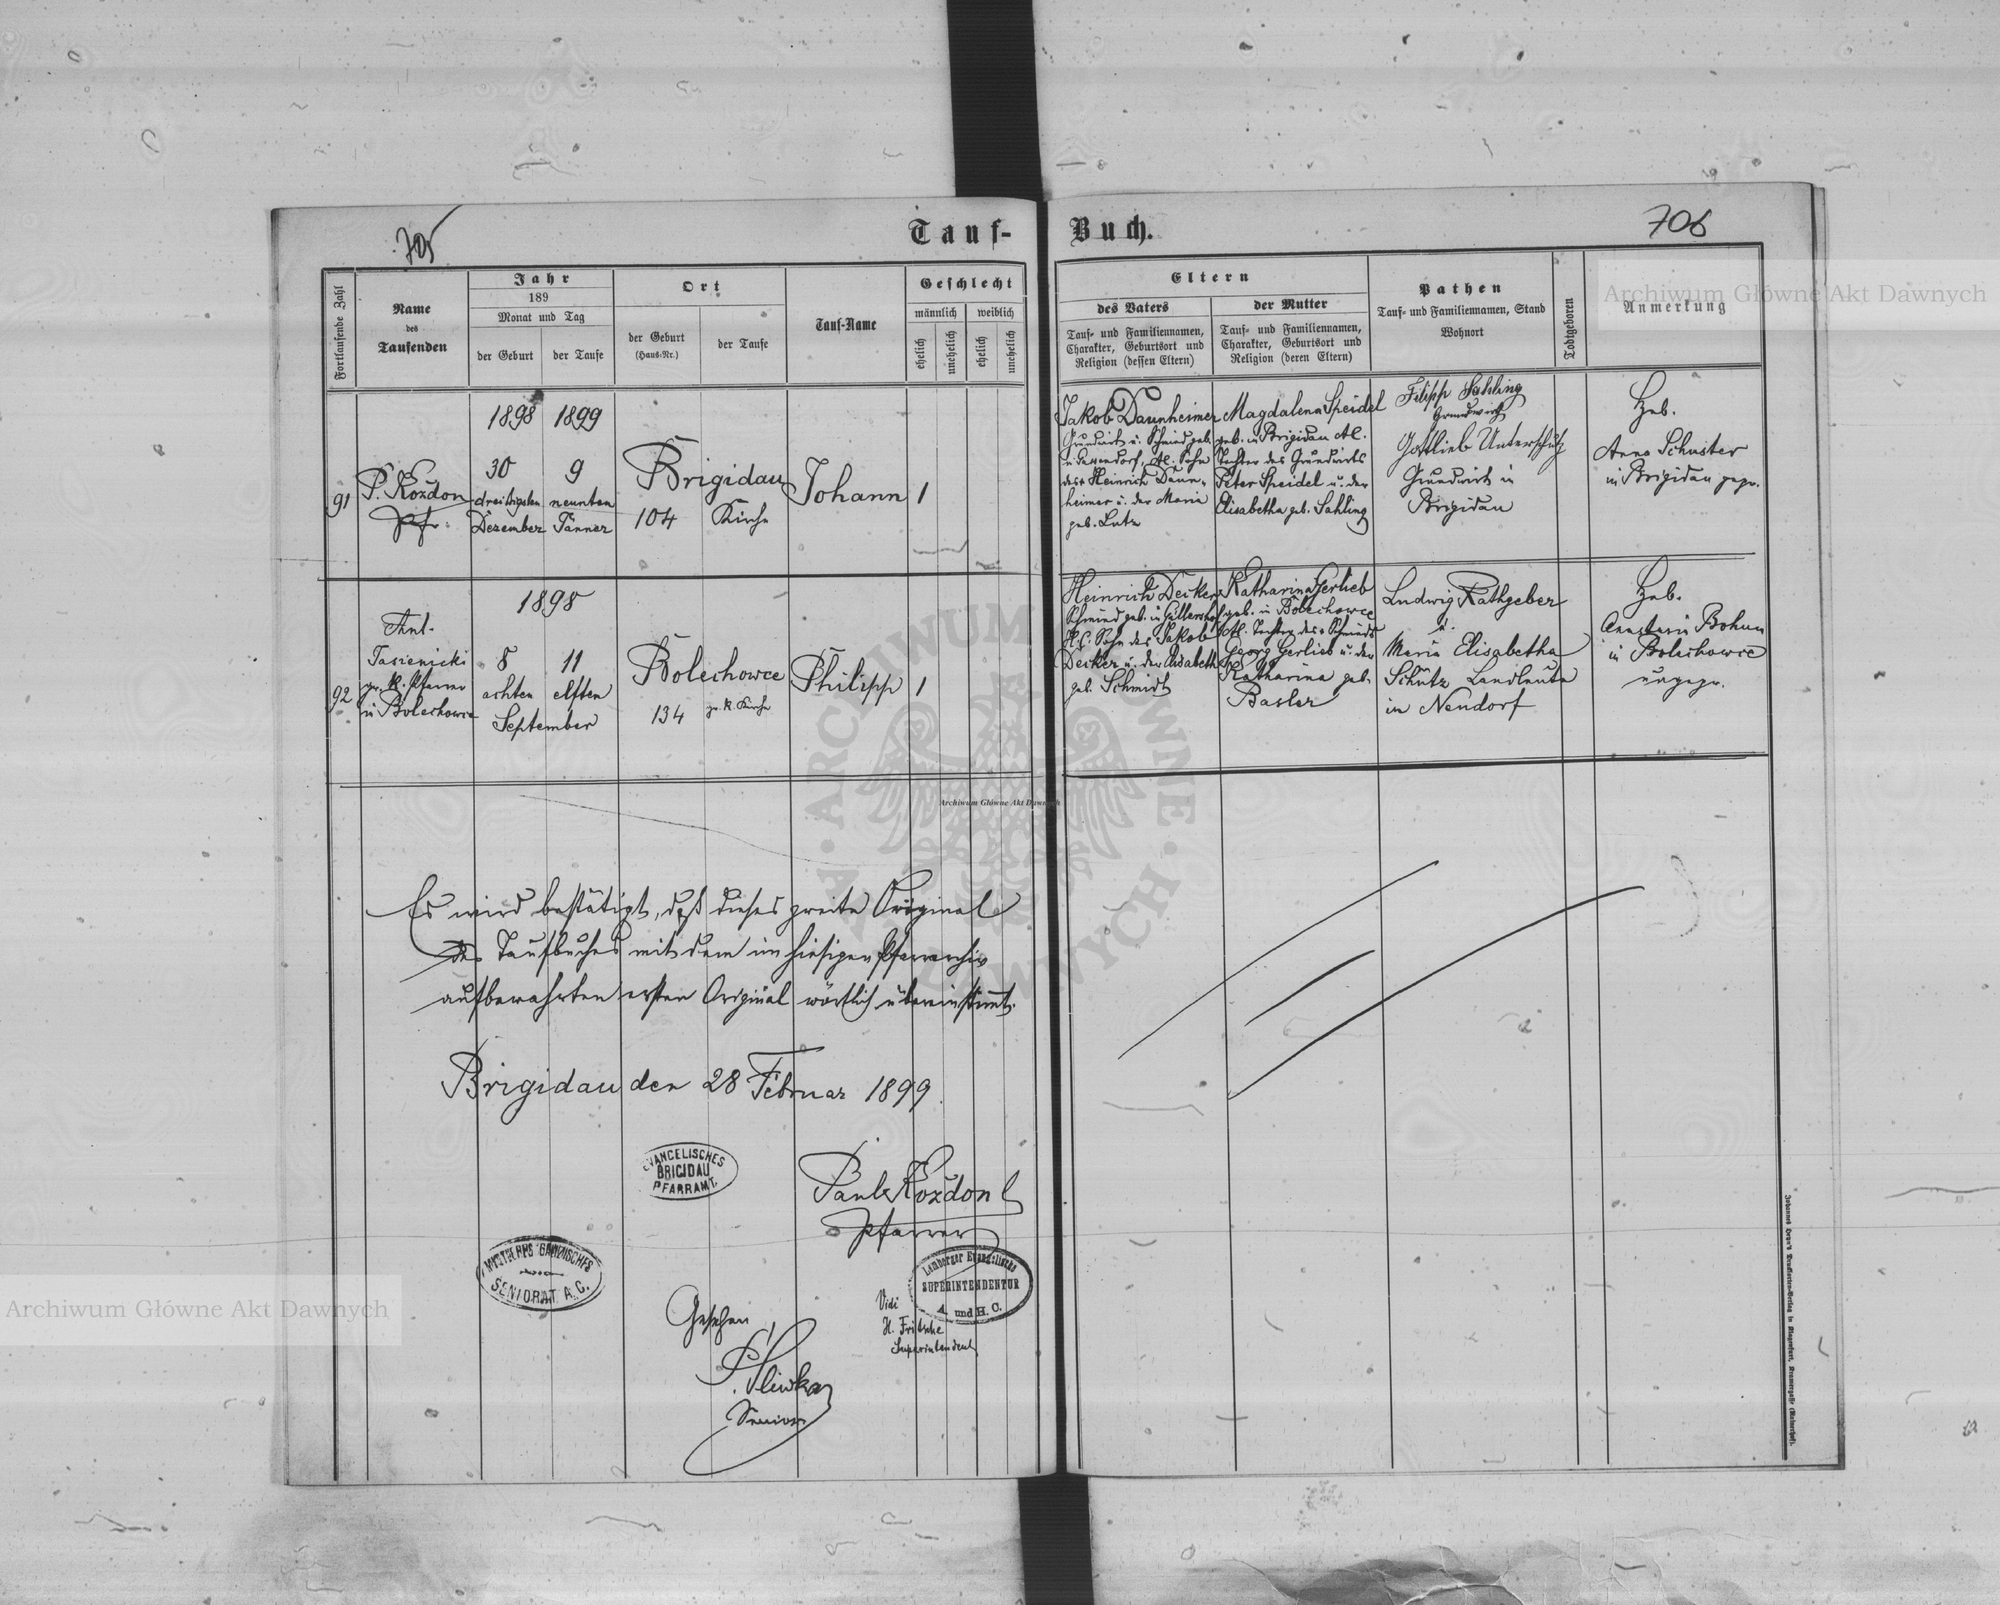 705
Tauf-
Buch.
706
Fortlaufende Zahl
Name
des
Taufenden
Jahr
189
Monat und Tag
der Geburt
der Taufe
Ort
der Geburt
(Haus-Nr.)
der Taufe
Tauf-Name
Geschlecht
männlich
weiblich
ehelich
unehelich
ehelich
unehelich
Eltern
des Vaters
Tauf- und Familiennamen,
Charakter, Geburtsort und
Religion (dessen Eltern)
der Mutter
Tauf- und Familiennamen,
Charakter, Geburtsort und
Religion (deren Eltern)
Pathen
Tauf- und Familiennamen, Stand
Wohnort
Todtgeboren
Anmerkung
91
P. Kozdon
Pfr.
1898
30
dreißigsten
Dezember
1899
9
neunten
Jänner
Brigidau
104
Kirche
Johann
1
Jakob Daunheimer
Grundwirt u. Schmied geb.
A.C. Sohn
des Heinrich Daun-
heimer u. der Maria
geb. Lutz
Magdalena Speidel
geb. in Brigidau A.C.
Tochter des Grundwirts
Peter Speidel u. der
Elisabetha geb. Sahling
Filipp Sahling
Grundwirth
Gottlieb Unterschütz
Grundwirt in
Brigidau
Heb.
Anna Schuster
in Brigidau gepr.
92
Ant.
Tasienicki
gr. k. Pfarrer
in Bolechowce
1898
8
achten
11
elften
September
Bolechowce
134
gr. k. Kirche
Philipp
1
Heinrich Decker
Schmied geb. in Gillershof
H.C. Sohn des Jakob
Decker u. der Elisabeth
geb. Schmidt
Katharina Gerlieb
geb. in Bolechowce
A.C. Tochter des Schmieds
Georg Gerlieb u. der
Katharina geb.
Basler
Ludwig Rathgeber
u.
Maria Elisabetha
Schütz Landleute
in Neudorf
Heb.
Anastasia Bohun
in Bolechowce
ungepr.
Es wird bestätigt, daß dieses zweite Original
des Taufbuches mit dem im hiesigen Pfarrarchiv
aufbewahrten ersten Original wörtlich übereinstimmt.
Brigidau den 28 Februar 1899.
EVANGELISCHES
BRIGIDAU
PFARRAMT.
Paul Kozdon
Pfarrer
SENIORAT A.C.
Lemberger Evangelische
SUPERINTENDENTUR
A. und H. C.
Gesehen
Vidi
H. Fritsche
Superintendent
P. Sliwka
Senior
Archiwum Główne Akt Dawnych
Archiwum Główne Akt Dawnych
Archiwum Główne Akt Dawnych
ARCHIWUM GŁÓWNE AKT DAWNYCH